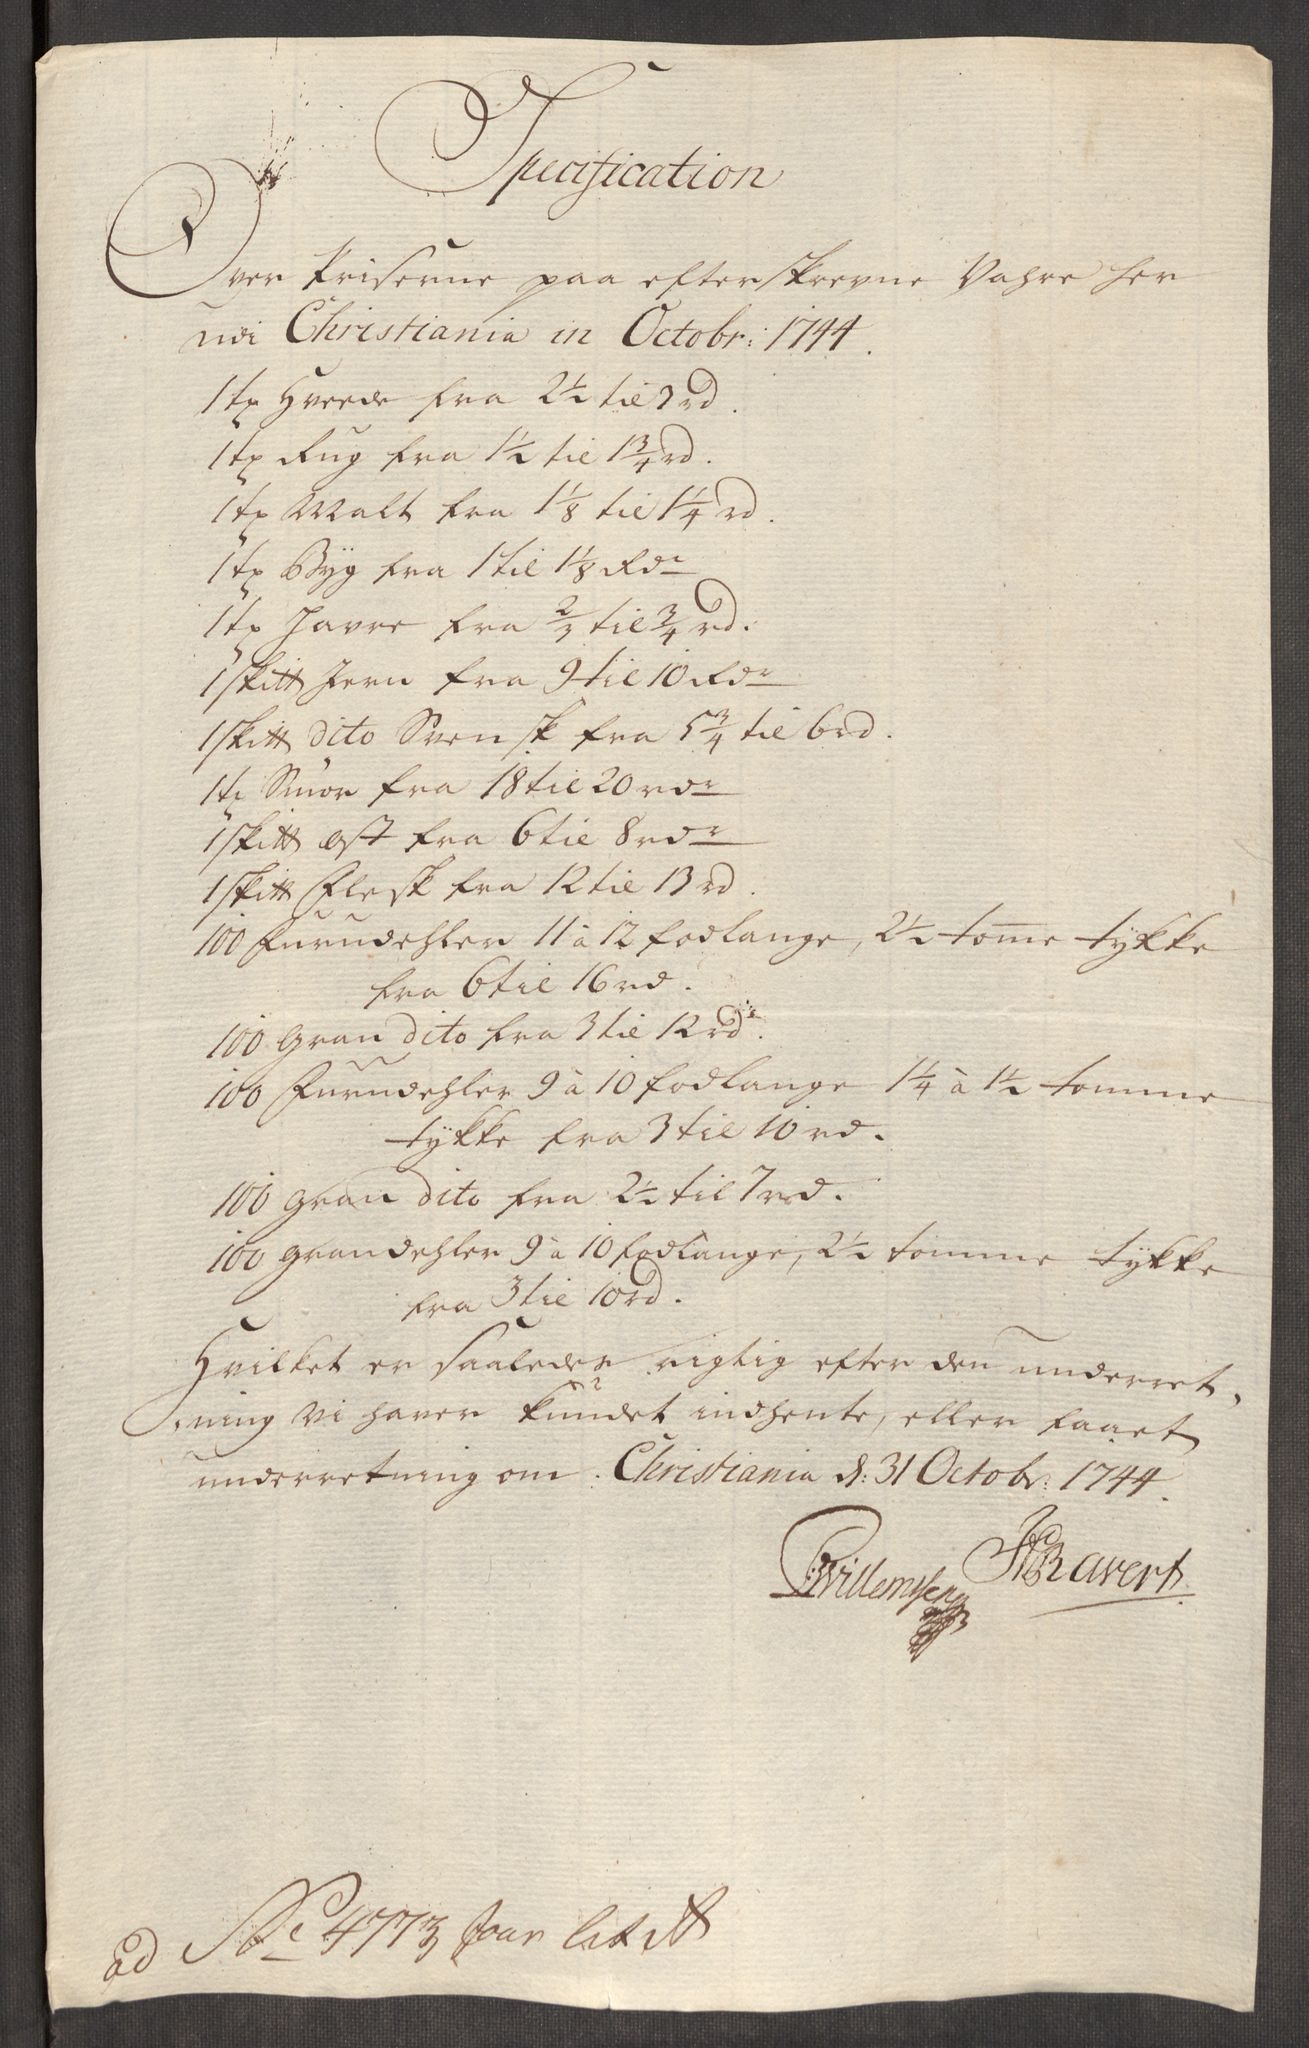 Specification
Over Priserne paa efterskrevne Vahre her
udi Christiania in Octobr: 1744.
1 tø Hvede fra 2½ til 3 rd.
1 tø Rug fra 1½ til 1¾ rd.
1 tø Malt fra 1⅛ til 1¼ rd.
1 tø Byg fra 1 til 1⅛ Rdr
1 tø Havre fra ⅔ til ¾ rd.
1 skitt Jern fra 9 til 10 Rdr
1 skitt dito Svensk fra 5¾ til 6 rd.
1 tø Smör fra 18 til 20 rdr
1 skitt ost fra 6 til 8 rdr
1 skitt Flesk fra 12 til 13 rd.
100 Furudehler 11 à 12 fodlange, 2½ tome tykke
fra 6 til 16 rd.
100 gran dito fra 3 til 12 rd.
100 Furudehler 9 à 10 fodlange 1¼ à 1½ tomme
tykke fra 3 til 10 rd.
100 gran dito fra 2½ til 7 rd.
100 grandehler 9 à 10 fodlange, 2½ tomme tykke
fra 3 til 10 rd.
Hvilket er saaledes rigtig efter den underret,
,ning vi haver kundet indhente, eller faaet
underretning om. Christiania d: 31 Octobr: 1744.
Willemsen Ravert
ad No 4773